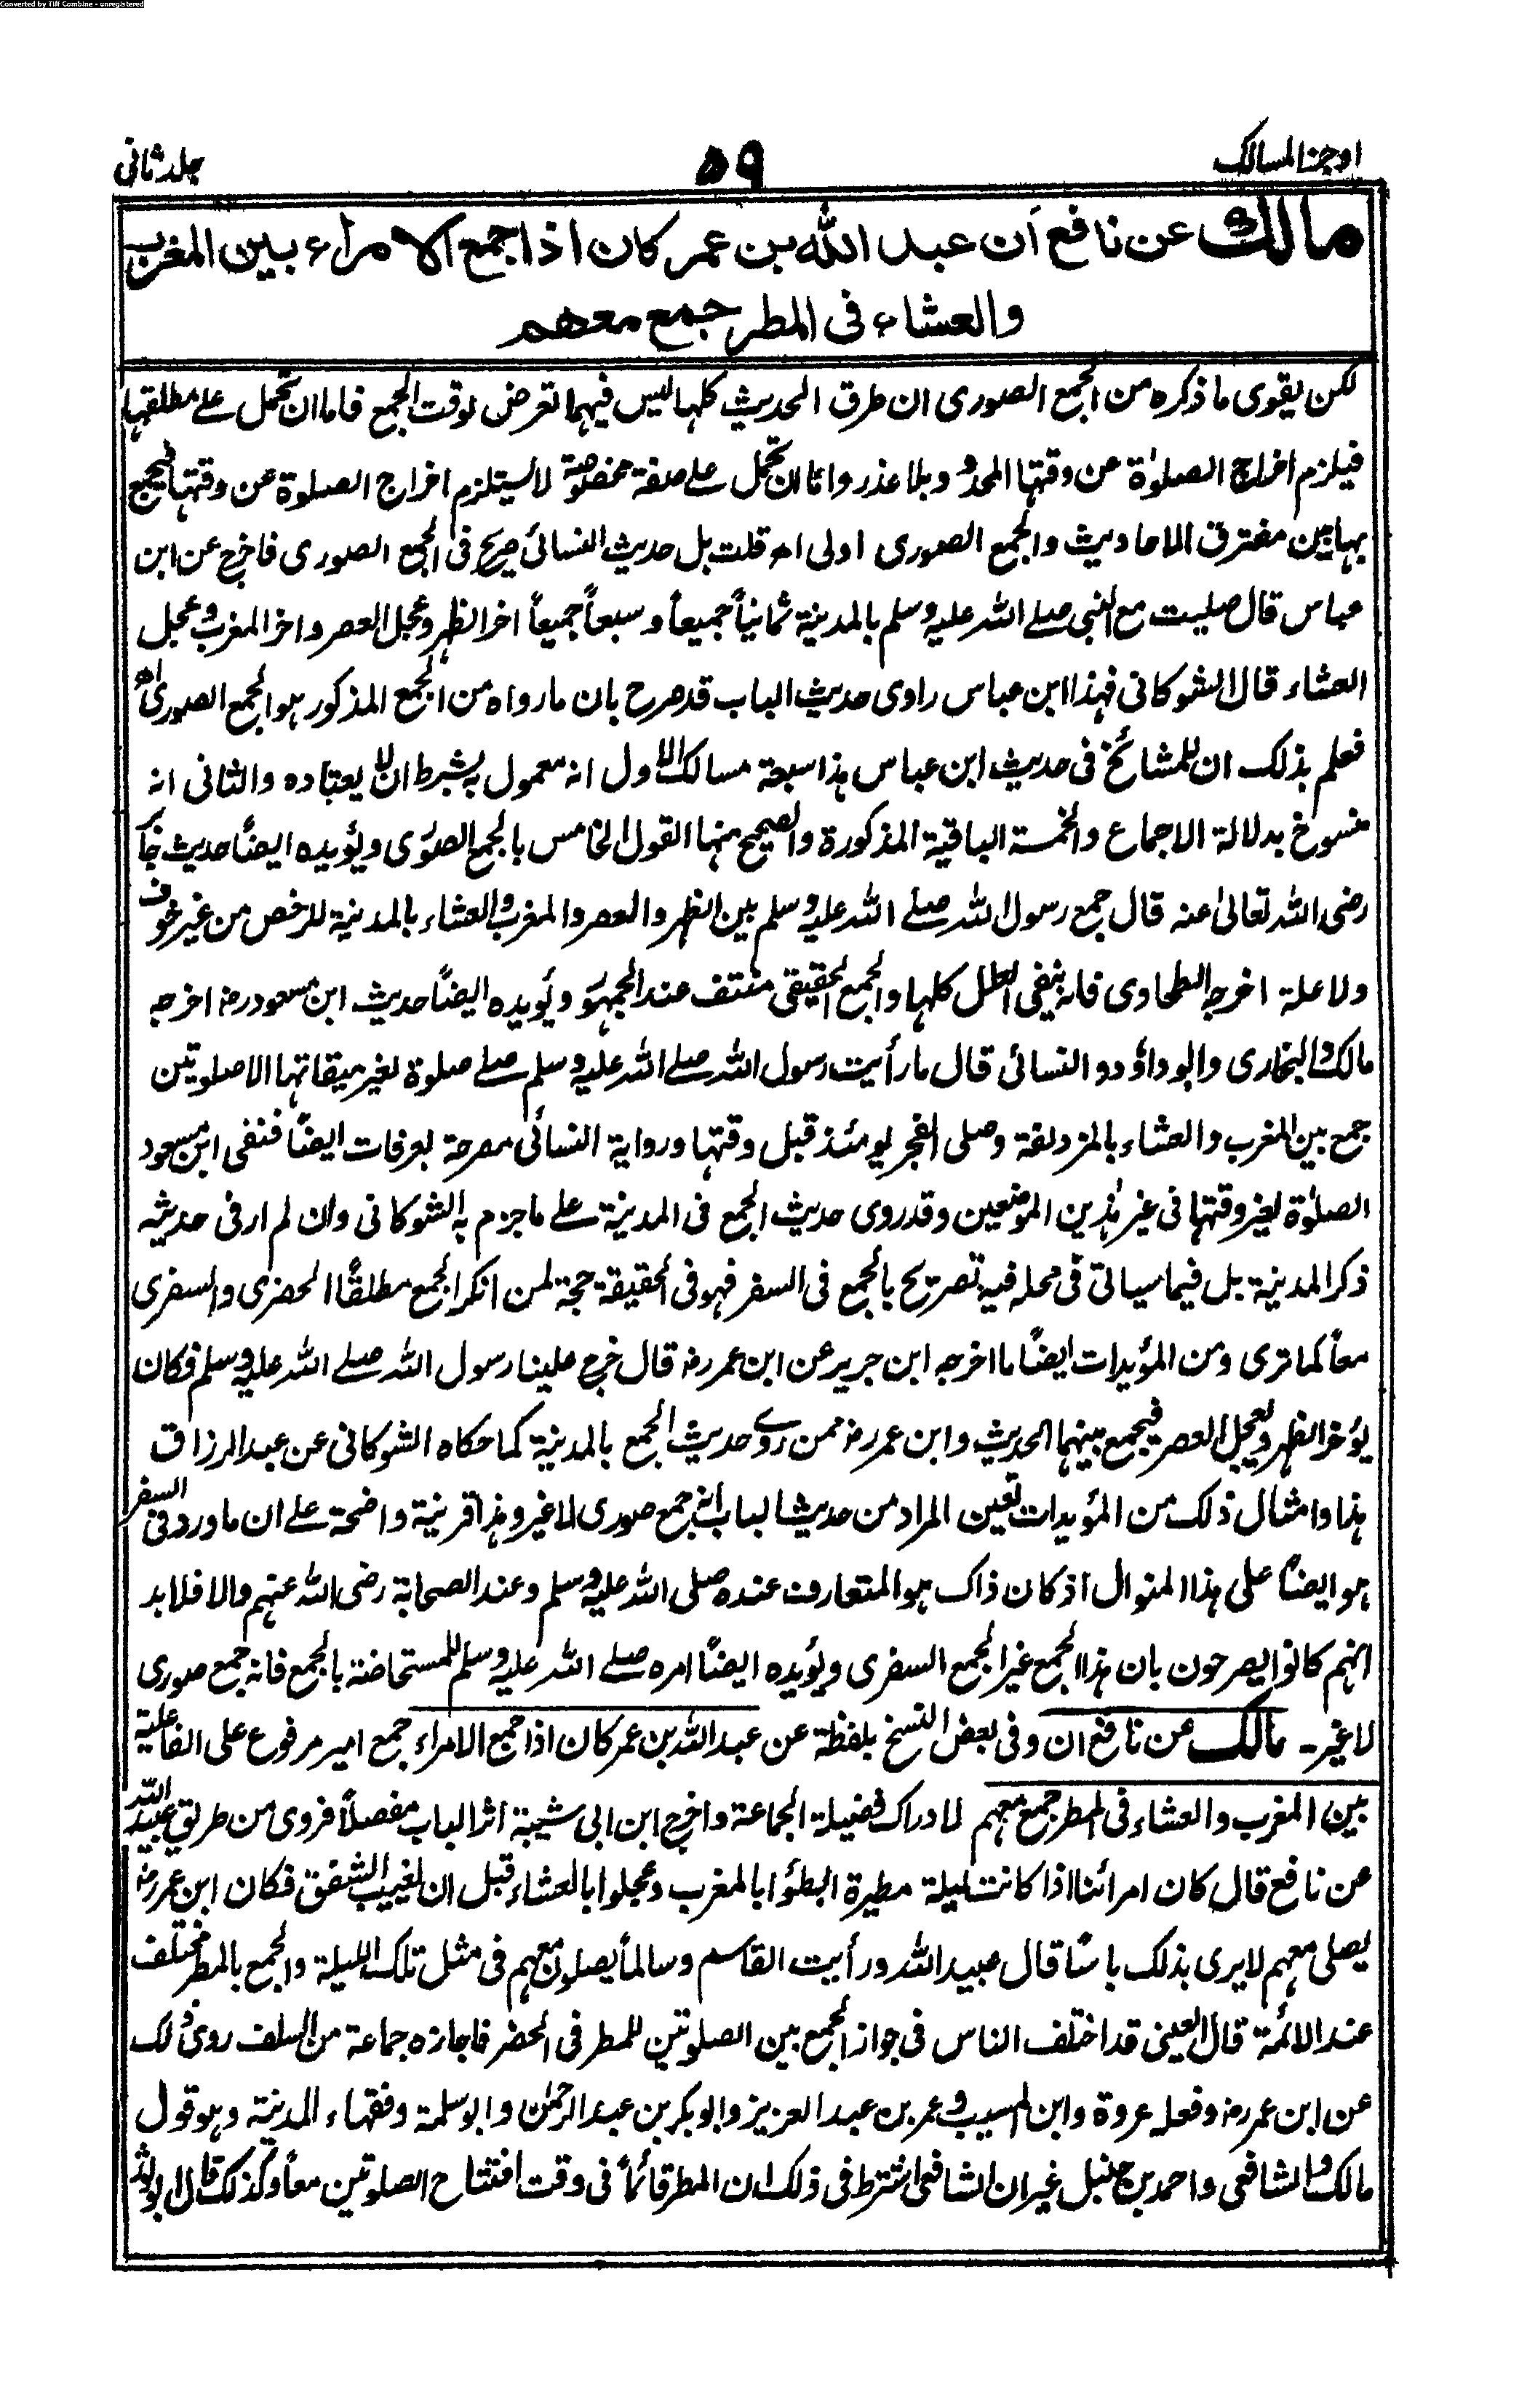 Converted by Tiff Combine - unregistered
اوجز المسالك
٥٩
جلد ثانی
مالك عن نافع أن عبد الله بن عمر كان اذا جمع الامراء بين المغرب
والعشاء فى المطر جمع معهم
لكن يقوى ما ذكره من الجمع الصورى ان طرق الحديث كلها ليس فيها تعرض لوقت الجمع فاما ان تحمل على مطلقها
فيلزم اخراج الصلوٰة عن وقتها المحدود بلا عذر واما ان تحمل على صفة مخصوصة لا يستلزم اخراج الصلوة عن وقتها ليجمع
بها بين مفترق الاحاديث والجمع الصورى اولى اھ قلت بل حديث النسائى صريح فى الجمع الصورى فاخرج عن ابن
عباس قال صليت مع النبى صلے الله عليه وسلم بالمدينة ثمانياً جميعاً وسبعاً جميعاً اخر الظهر وعجل العصر واخر المغرب وعجل
العشاء قال الشوكانى فهذا ابن عباس راوى حديث الباب قد صرح بان ما رواه من الجمع المذكور هو الجمع الصورى اھ
فعلم بذلك ان للمشائخ فى حديث ابن عباس هذا سبعة مسالك الاول انه معمول به بشرط ان لا يعتاده والثانى انه
منسوخ بدلالة الاجماع والخمسة الباقية المذكورة والصحيح منها القول الخامس بالجمع الصورى ويؤيده ايضاً حديث جابر
رضى الله تعالىٰ عنه قال جمع رسول الله صلے الله عليه وسلم بين الظهر والعصر والمغرب والعشاء بالمدينة للرخص من غير خوف
ولا علة اخرجه الطحاوى فانه ينفى العلل كلها والجمع الحقيقى منتف عند الجمهور ويؤيده ايضاً حديث ابن مسعود رض اخرجه
مالك والبخارى وابو داؤد والنسائى قال ما رأيت رسول الله صلے الله عليه وسلم صلے صلوة لغير ميقاتها الا صلوتين
جمع بين المغرب والعشاء بالمزدلفة وصلى الفجر يومئذ قبل وقتها ورواية النسائى مصرحة بعرفات ايضاً فنفى ابن مسعود
الصلوٰة لغير وقتها فى غير هٰذين الموضعين وقد روى حديث الجمع فى المدينة على ما جزم به الشوكانى وان لم ار فى حديثه
ذكر المدينة بل فيما سياتى فى محله فيه تصريح بالجمع فى السفر فهو فى الحقيقة حجة لمن انكر الجمع مطلقاً الحضرى والسفرى
معاً كما ترى ومن المؤيدات ايضاً ما اخرجه ابن جرير عن ابن عمر رض قال خرج علينا رسول الله صلے الله عليه وسلم فكان
يؤخر الظهر ويعجل العصر فيجمع بينهما الحديث وابن عمر رض ممن روے حديث الجمع بالمدينة كما حكاه الشوكانى عن عبد الرزاق
هذا وامثال ذلك من المؤيدات تعين المراد من حديث الباب انه جمع صورى لا غير وهذا قرينة واضحة على ان ما ورد فى السفر
هو ايضاً على هذا المنوال اذ كان ذاك هو المتعارف عنده صلى الله عليه وسلم وعند الصحابة رضى الله عنهم والا فلا بد
انهم كانوا يصرحون بان هذا الجمع غير الجمع السفرى ويؤيده ايضاً امره صلے الله عليه وسلم للمستحاضة بالجمع فانه جمع صورى
لا غير۔ مالك عن نافع ان وفى بعض النسخ بلفظة عن عبد الله بن عمر كان اذا جمع الامراء جمع امير مرفوع على الفاعلية
بين المغرب والعشاء فى المطر جمع معهم لادراك فضيلة الجماعة واخرج ابن ابى شيبة اثر الباب مفصلاً فروى من طريق عبيد الله
عن نافع قال كان امرائنا اذا كانت ليلة مطيرة ابطؤا بالمغرب وعجلوا بالعشاء قبل ان يغيب الشفق فكان ابن عمر رض
يصلى معهم لا يرى بذلك باسًا قال عبيد الله ورأيت القاسم وسالماً يصلون معهم فى مثل تلك الليلة والجمع بالمطر مختلف
عند الائمة قال العينى قد اختلف الناس فى جواز الجمع بين الصلوتين للمطر فى الحضر فاجازه جماعة من السلف روى ذلك
عن ابن عمر رض وفعله عروة وابن المسيب وعمر بن عبد العزيز وابو بكر بن عبد الرحمٰن وابو سلمة وفقهاء المدينة وهو قول
مالك والشافعى واحمد بن حنبل غير ان الشافعى اشترط فى ذلك ان المطر قائماً فى وقت افتتاح الصلوتين معاً وكذلك قال ابو ثور